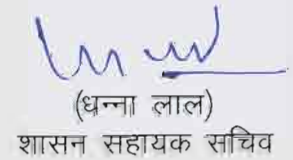 (धन्ना लाल)
शासन सहायक सचिव